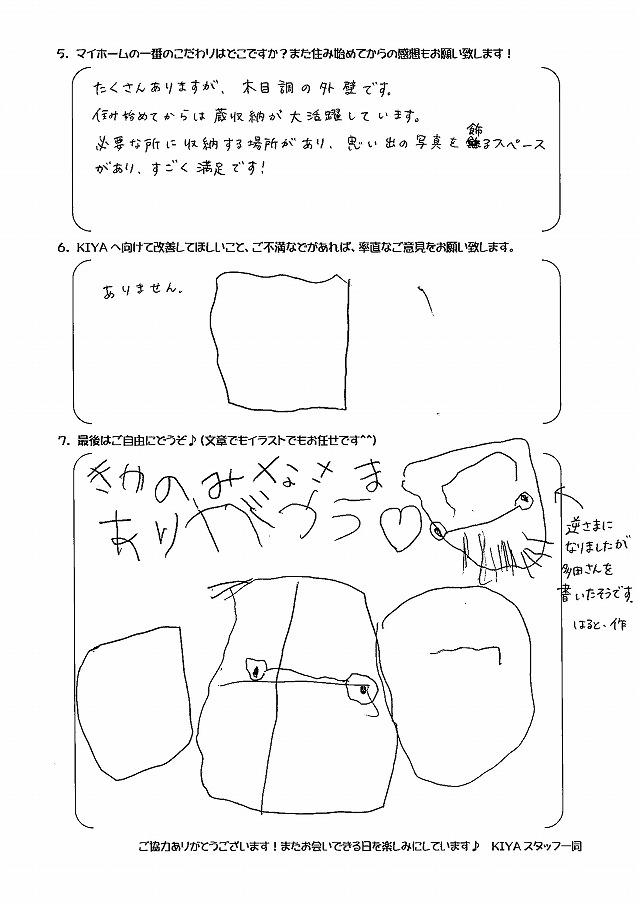 5. マイホームの一番のこだわりはどこですか？また住み始めてからの感想もお願い致します！
たくさんありますが、木目調の外壁です。
住み始めてからは蔵収納が大活躍しています。
必要な所に収納する場所があり、思い出の写真を飾るスペース
があり、すごく満足です！
6. KIYAへ向けて改善してほしいこと、ご不満などがあれば、率直なご意見をお願い致します。
ありません。
7. 最後はご自由にどうぞ♪（文章でもイラストでもお任せです^^）
きやのみなさま
ありがとう♡
逆さまに
なりましたが
多田さんを
書いたそうです。
はると、作
ご協力ありがとうございます！またお会いできる日を楽しみにしています♪ KIYAスタッフ一同